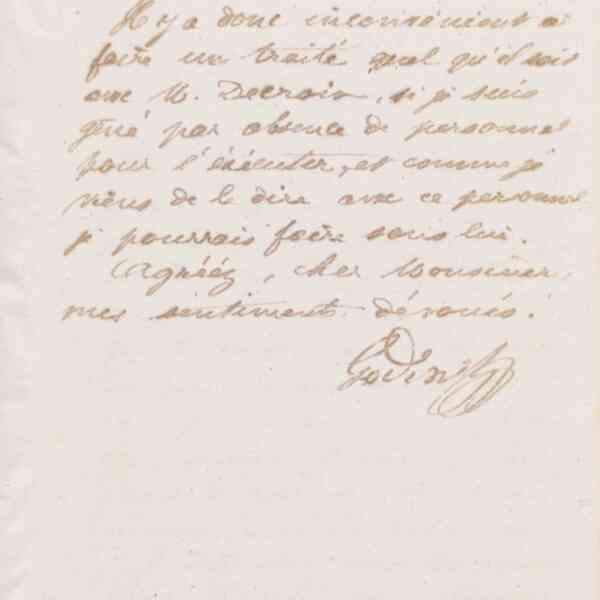 Il y a donc inconvénient à
faire un traité quel qu'il soit
avec M. Decroix, si je suis
gêné par absence de personnel
pour l'exécuter, et comme je
viens de le dire avec ce personnel
je pourrais faire sans lui.
Agréez, cher Monsieur,
mes sentiments dévoués.
Godin